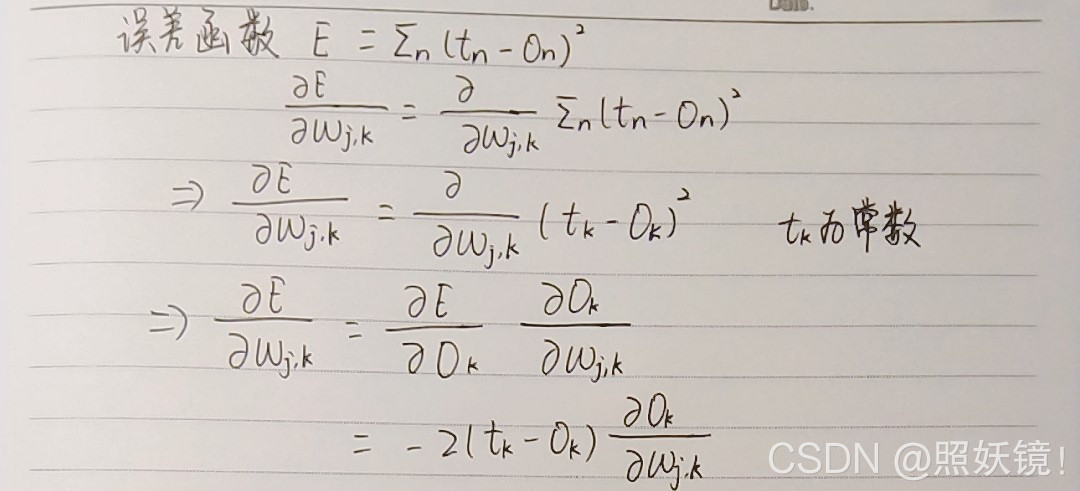 Date.
误差函数 E = Σn(tn - On)²
∂E/∂Wj,k = ∂/∂Wj,k Σn(tn - On)²
=> ∂E/∂Wj,k = ∂/∂Wj,k (tk - Ok)² tk为常数
=> ∂E/∂Wj,k = ∂E/∂Ok ∂Ok/∂Wj,k
= -2(tk - Ok) ∂Ok/∂Wj,k
CSDN @照妖镜!